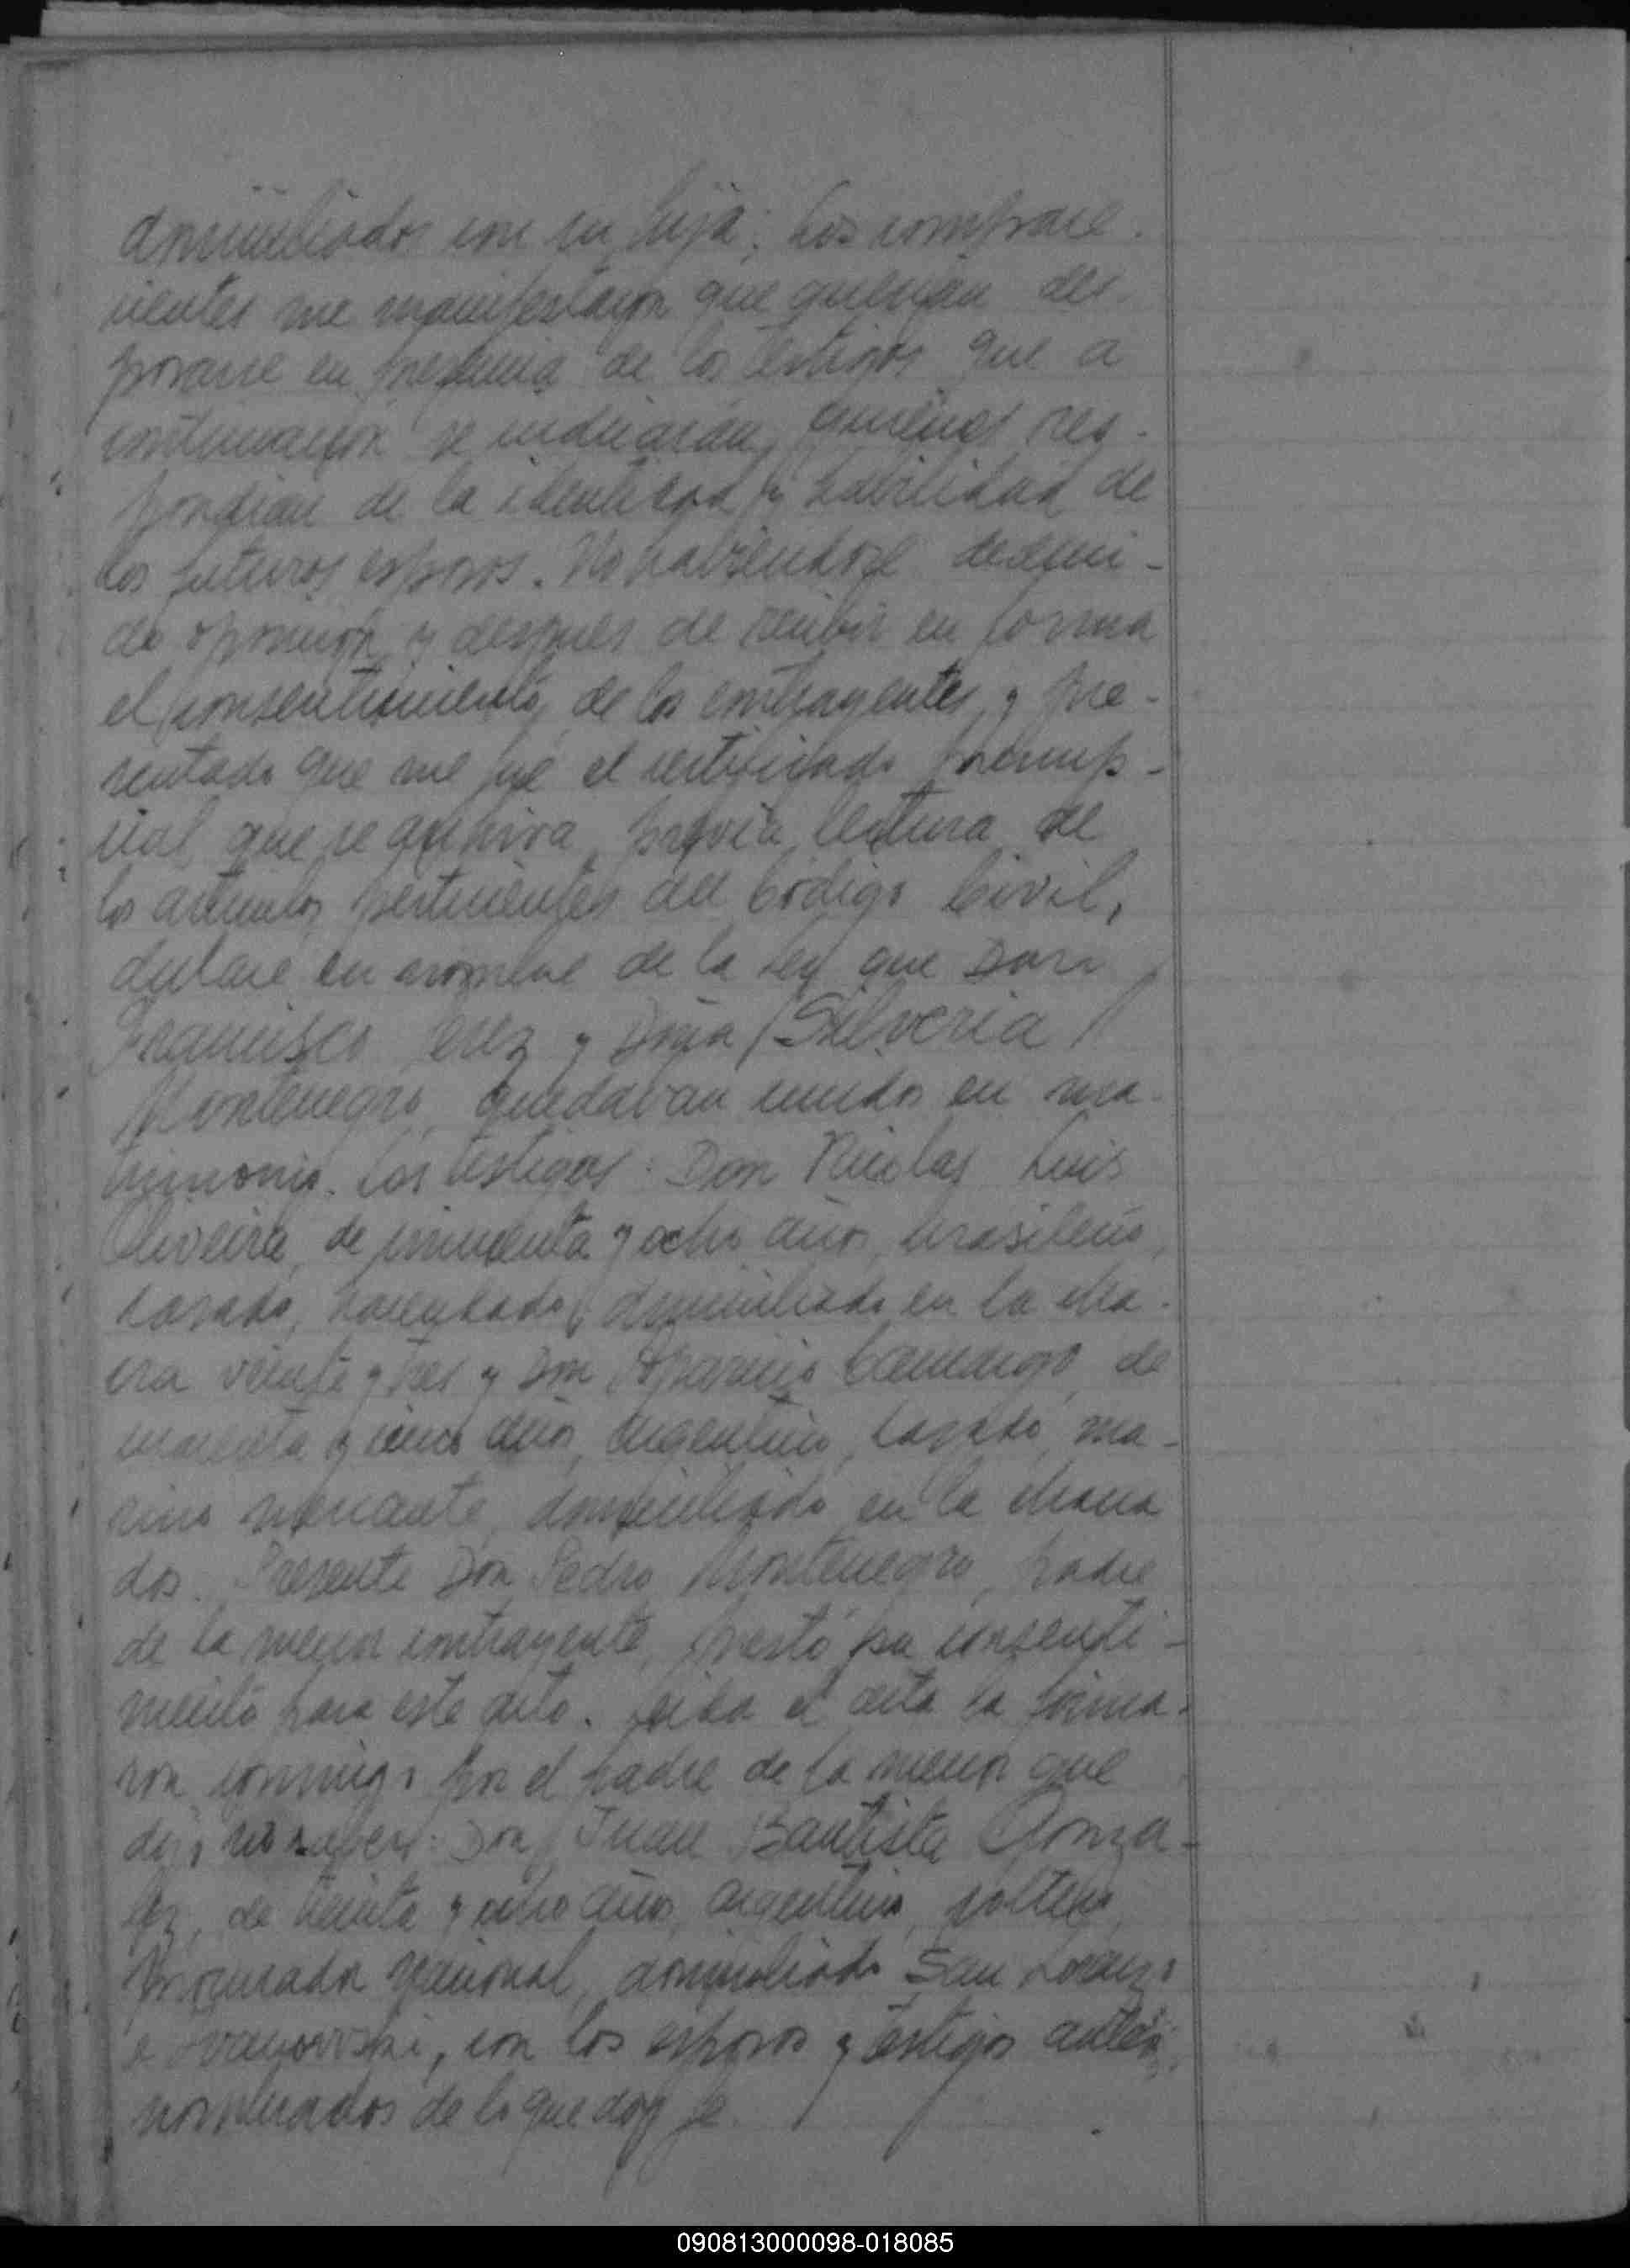 domiciliados con su hija; Los compare-
cientes me manifestaron que querian des-
posarse en presencia de los testigos que a
continuación se indicarán, quienes res-
pondian de la identidad y habilidad de
los futuros esposos. No habiendose deduci-
do oposición y despues de recibir en forma
el consentimiento de los contrayentes y pre-
sentado que me fue el certificado prenup-
cial que se archiva previa lectura de
los articulos pertinentes del Código Civil,
declare en nombre de la Ley que Don
Francisco y Doña Silveria
Montenegro, quedaban unidos en ma-
trimonio. Los testigos: Don Nicolas Luis
Oliveira, de cincuenta y ocho años, brasileño,
casado, hacendado, domiciliado en la Cha-
cra veinte y tres y Don Aparicio Camargo, de
cuarenta y cinco años, argentino, casado, ma-
rino mercante, domiciliado en la Chacra
dos. Presente Don Pedro Montenegro, padre
de la menor contrayente, prestó su consenti-
miento para este acto. Leida el acta la firma-
ron conmigo por el padre de la menor que
dijo no saber: Don Juan Bautista Gonza-
lez, de treinta y ocho años, argentino, soltero,
Procurador Nacional, domiciliado San Lorenzo
e con los esposos y testigos antes
nombrados de lo que doy fe.
090813000098-018085